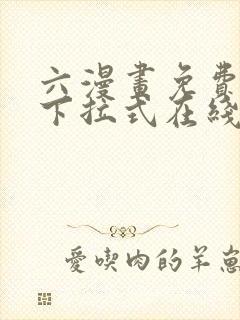 六漫畫免費
下拉式在綫
愛喫肉的羊崽